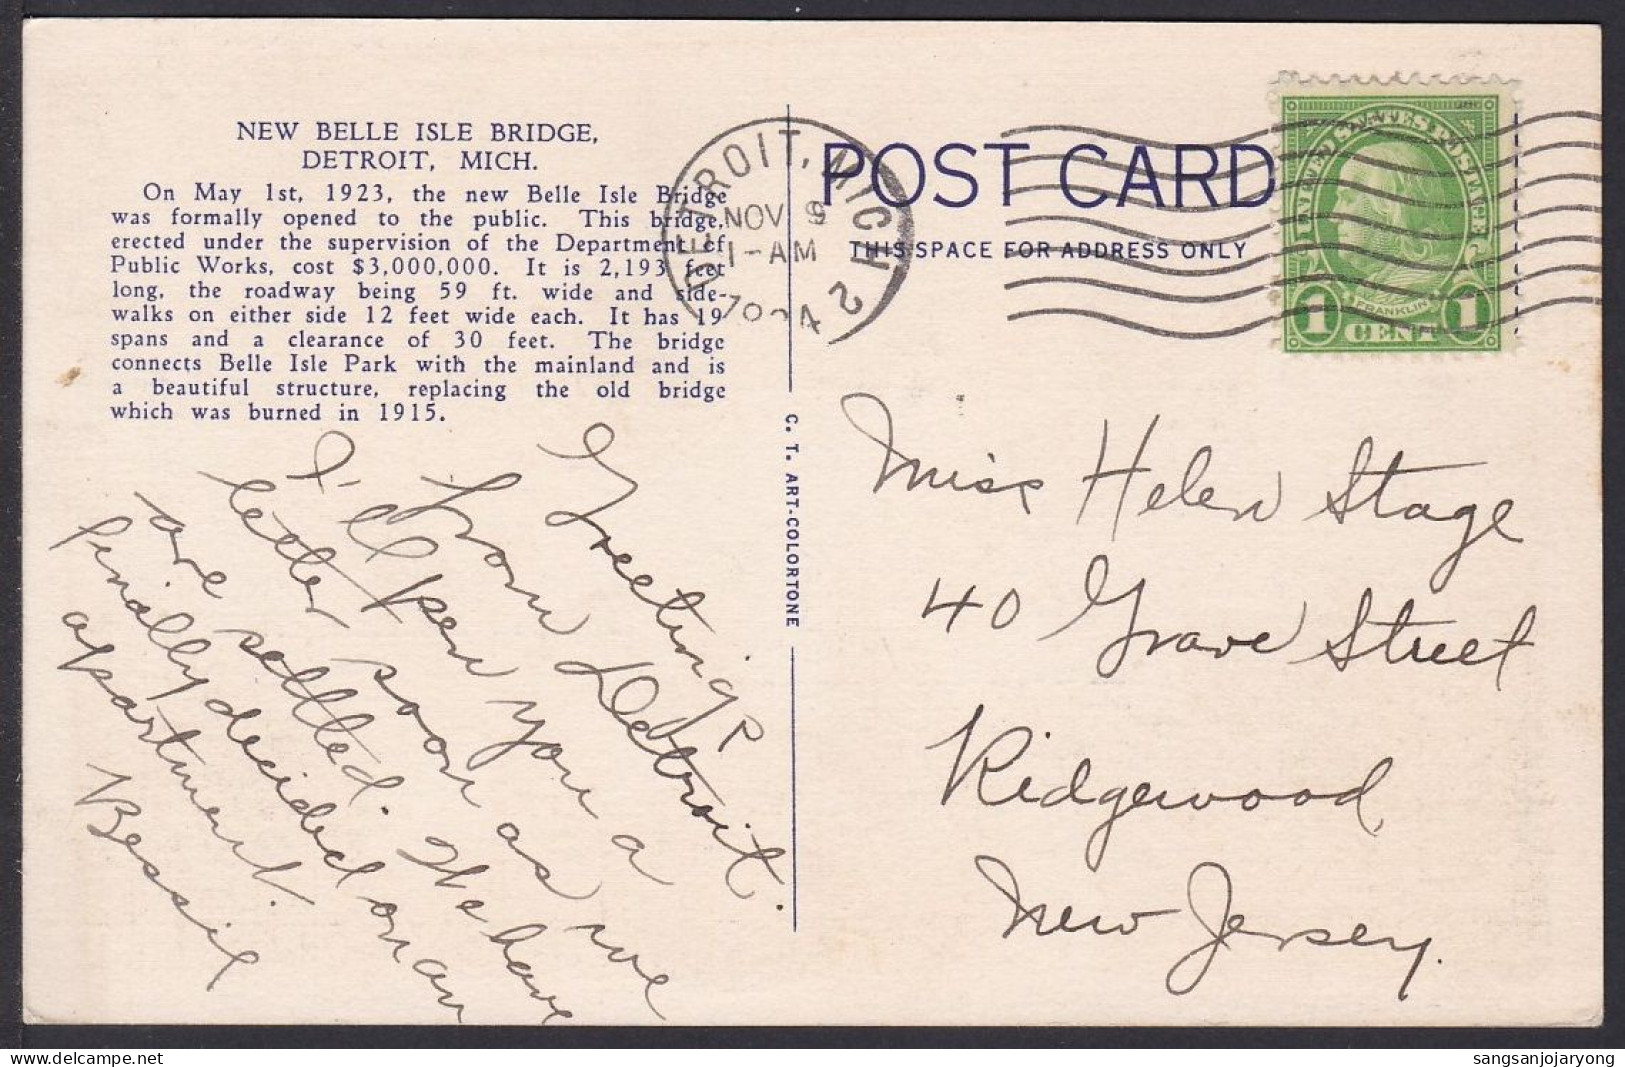 NEW BELLE ISLE BRIDGE,
DETROIT, MICH.
On May 1st, 1923, the new Belle Isle Bridge
was formally opened to the public. This bridge,
erected under the supervision of the Department of
Public Works, cost $3,000,000. It is 2,193 feet
long, the roadway being 59 ft. wide and side-
walks on either side 12 feet wide each. It has 19
spans and a clearance of 30 feet. The bridge
connects Belle Isle Park with the mainland and is
a beautiful structure, replacing the old bridge
which was burned in 1915.
Greetings
from Detroit.
I'll pen you a
letter soon as we
are settled. We have
finally decided on an
apartment.
Bessie
C. T. ART-COLORTONE
DETROIT, MICH. 2
NOV 9
1-AM
POST CARD
THIS SPACE FOR ADDRESS ONLY
UNITED STATES POSTAGE
FRANKLIN
1 CENT 1
Miss Helen Stage
40 Grove Street
Ridgewood,
New Jersey.
sangsanjojaryong